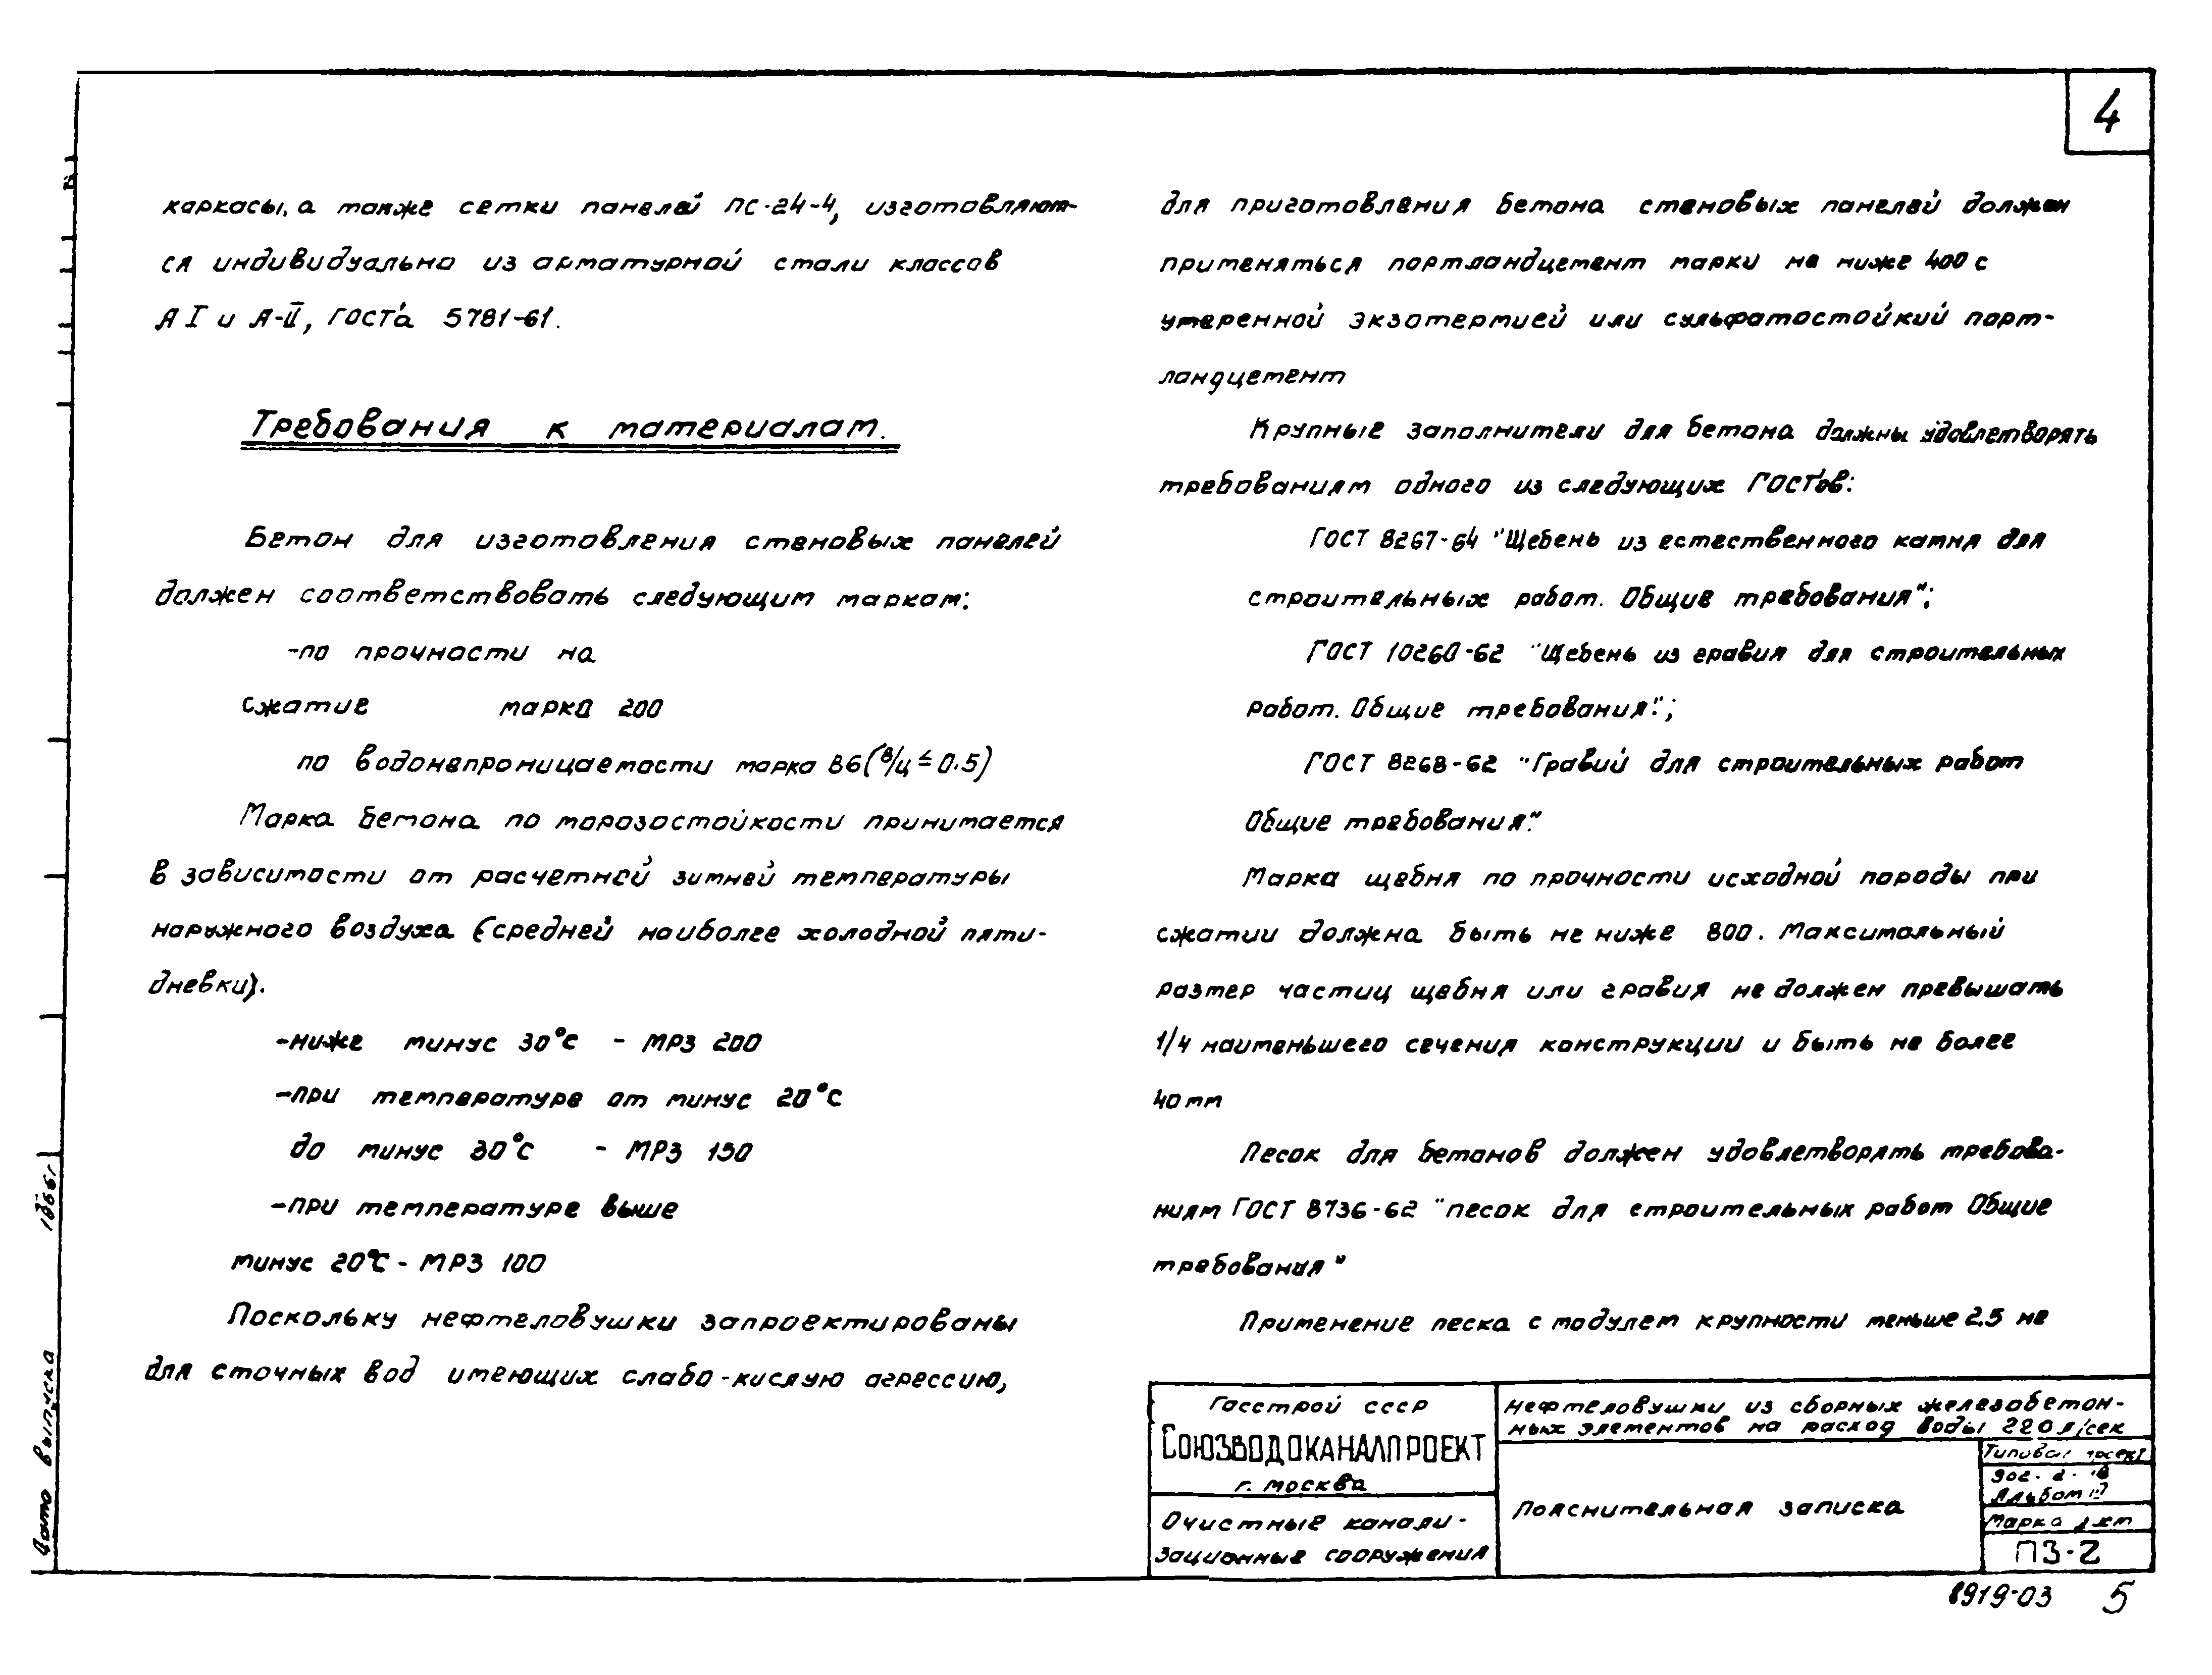 4
каркасы, а также сетки панелей ПС-24-4, изготовляют-
ся индивидуально из арматурной стали классов
А I и А-II, ГОСТ'а 5781-61.
Требования к материалам.
Бетон для изготовления стеновых панелей
должен соответствовать следующим маркам:
-по прочности на
сжатие марка 200
по водонепроницаемости марка В6 (В/Ц ≤ 0.5)
Марка бетона по морозостойкости принимается
в зависимости от расчетной зимней температуры
наружного воздуха (средней наиболее холодной пяти-
дневки).
-ниже минус 30°С - МРЗ 200
-при температуре от минус 20°С
до минус 30°С - МРЗ 150
-при температуре выше
минус 20°С - МРЗ 100
Поскольку нефтеловушки запроектированы
для сточных вод имеющих слабо-кислую агрессию,
для приготовления бетона стеновых панелей должен
применяться портландцемент марки не ниже 400 с
умеренной экзотермией или сульфатостойкий порт-
ландцемент
Крупные заполнители для бетона должны удовлетворять
требованиям одного из следующих ГОСТ'ов:
ГОСТ 8267-64 "Щебень из естественного камня для
строительных работ. Общие требования";
ГОСТ 10260-62 "Щебень из гравия для строительных
работ. Общие требования.";
ГОСТ 8268-62 "Гравий для строительных работ
Общие требования."
Марка щебня по прочности исходной породы при
сжатии должна быть не ниже 800. Максимальный
размер частиц щебня или гравия не должен превышать
1/4 наименьшего сечения конструкции и быть не более
40 мм
Песок для бетонов должен удовлетворять требова-
ниям ГОСТ 8736-62 "песок для строительных работ Общие
требования"
Применение песка с модулем крупности меньше 2.5 не
Госстрой СССР
СОЮЗВОДОКАНАЛПРОЕКТ
г. Москва
Очистные канали-
зационные сооружения
Нефтеловушки из сборных железобетон-
ных элементов на расход воды 220 л/сек
Пояснительная записка
Типовой проект
Альбом
Марка лист
ПЗ-2
8919-03 5
Дата выпуска 1966г